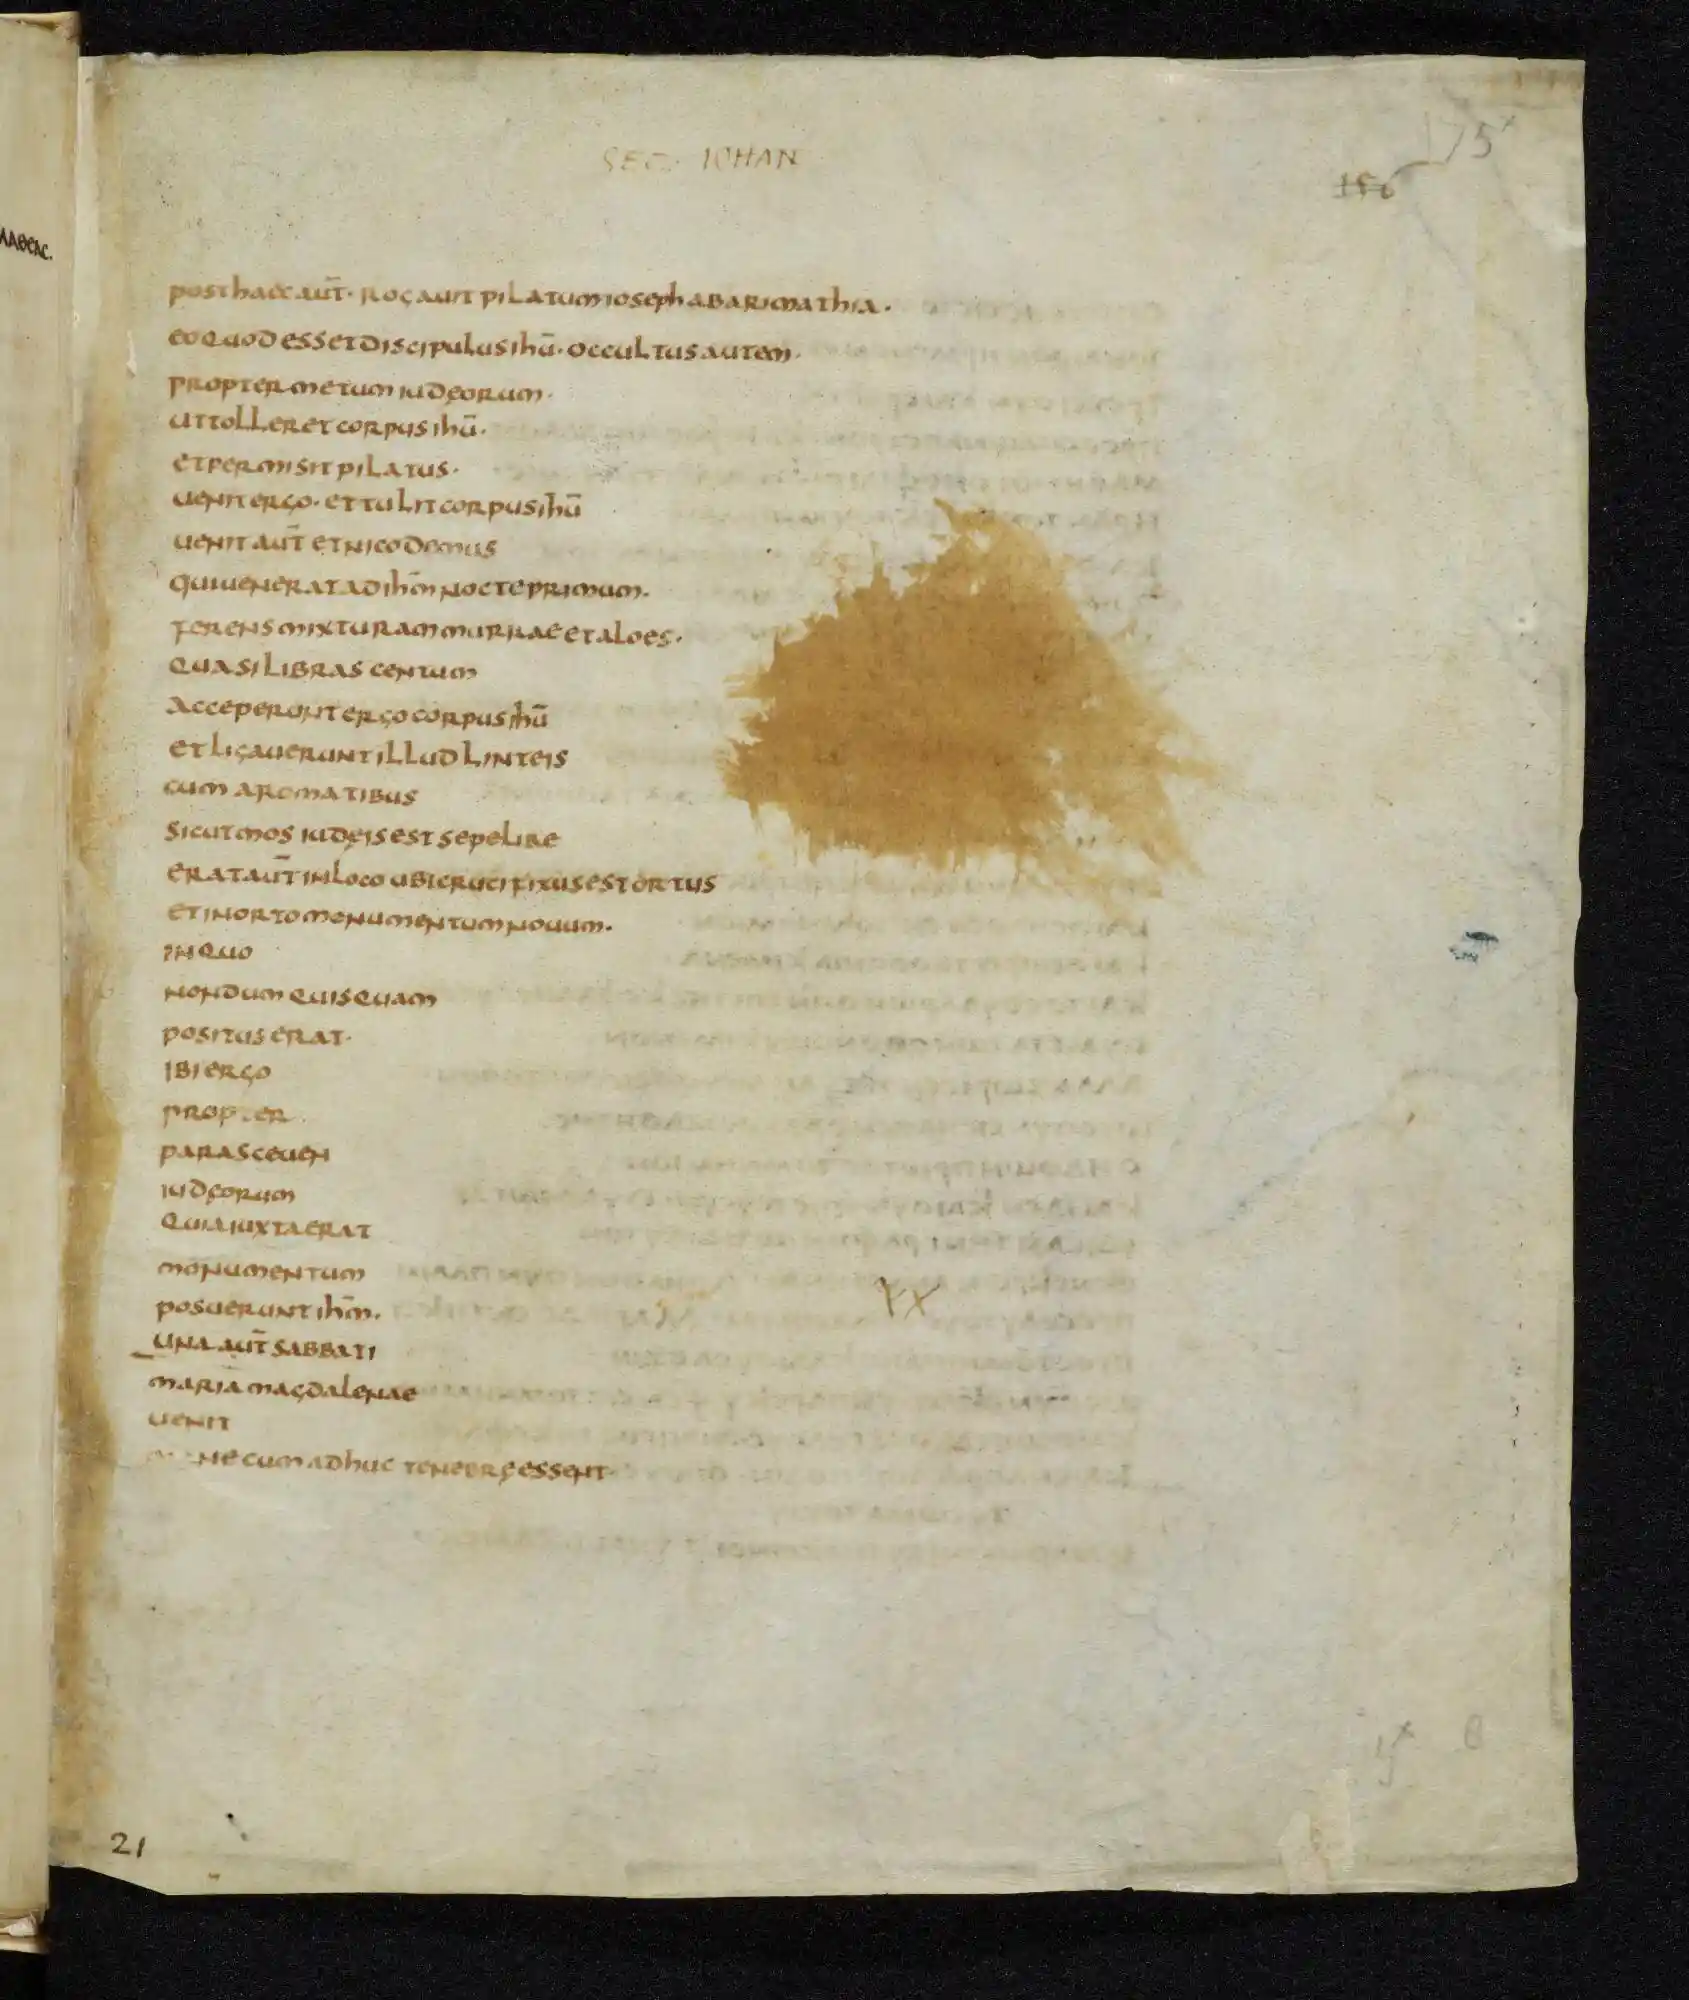 SEC· IOHAN
175
156
posthaec aut̄· rogauit pilatum ioseph ab arimathia·
eo quod esset discipulus ihū· occultus autem·
propter metum iudęorum·
ut tolleret corpus ihū·
et permisit pilatus·
uenit ergo· et tulit corpus ihū
uenit aut̄ et nicodemus
qui uenerat ad ihm̄ nocte primum·
ferens mixturam murrae et aloes·
quasi libras centum
acceperunt ergo corpus ihū
et ligauerunt illud linteis
cum aromatibus
sicut mos iudęis est sepelire
erat aut̄ in loco ubi crucifixus est ortus
et in orto monumentum nouum·
in quo
nondum quisquam
positus erat·
ibi ergo
propter
parasceuen
iudęorum
quia iuxta erat
monumentum
posuerunt ihm̄·
una aut̄ sabbati
maria magdalenae
uenit
cum adhuc tenebrę essent·
21